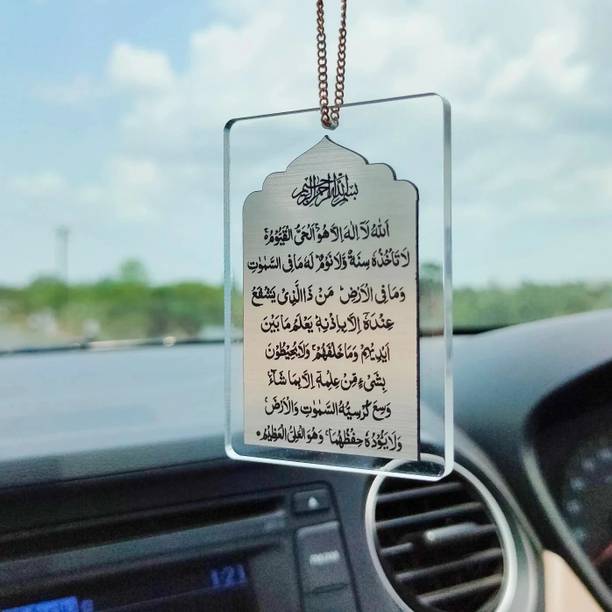 بسم الله الرحمن الرحيم
اَللهُ لَآ اِلٰهَ اِلَّا هُوَ الْحَيُّ الْقَيُّوْمُ ۚ
لَا تَاْخُذُهٗ سِنَةٌ وَّلَا نَوْمٌ ؕ لَهٗ مَا فِى السَّمٰوٰتِ
وَمَا فِى الْاَرْضِ ؕ مَنْ ذَا الَّذِىْ يَشْفَعُ
عِنْدَهٗٓ اِلَّا بِاِذْنِهٖ ؕ يَعْلَمُ مَا بَيْنَ
اَيْدِيْهِمْ وَمَا خَلْفَهُمْ ۚ وَلَا يُحِيْطُوْنَ
بِشَىْءٍ مِّنْ عِلْمِهٖٓ اِلَّا بِمَا شَآءَ ۚ
وَسِعَ كُرْسِيُّهُ السَّمٰوٰتِ وَالْاَرْضَ ۚ
وَلَا يَئُوْدُهٗ حِفْظُهُمَا ۚ وَهُوَ الْعَلِىُّ الْعَظِيْمُ
1:21